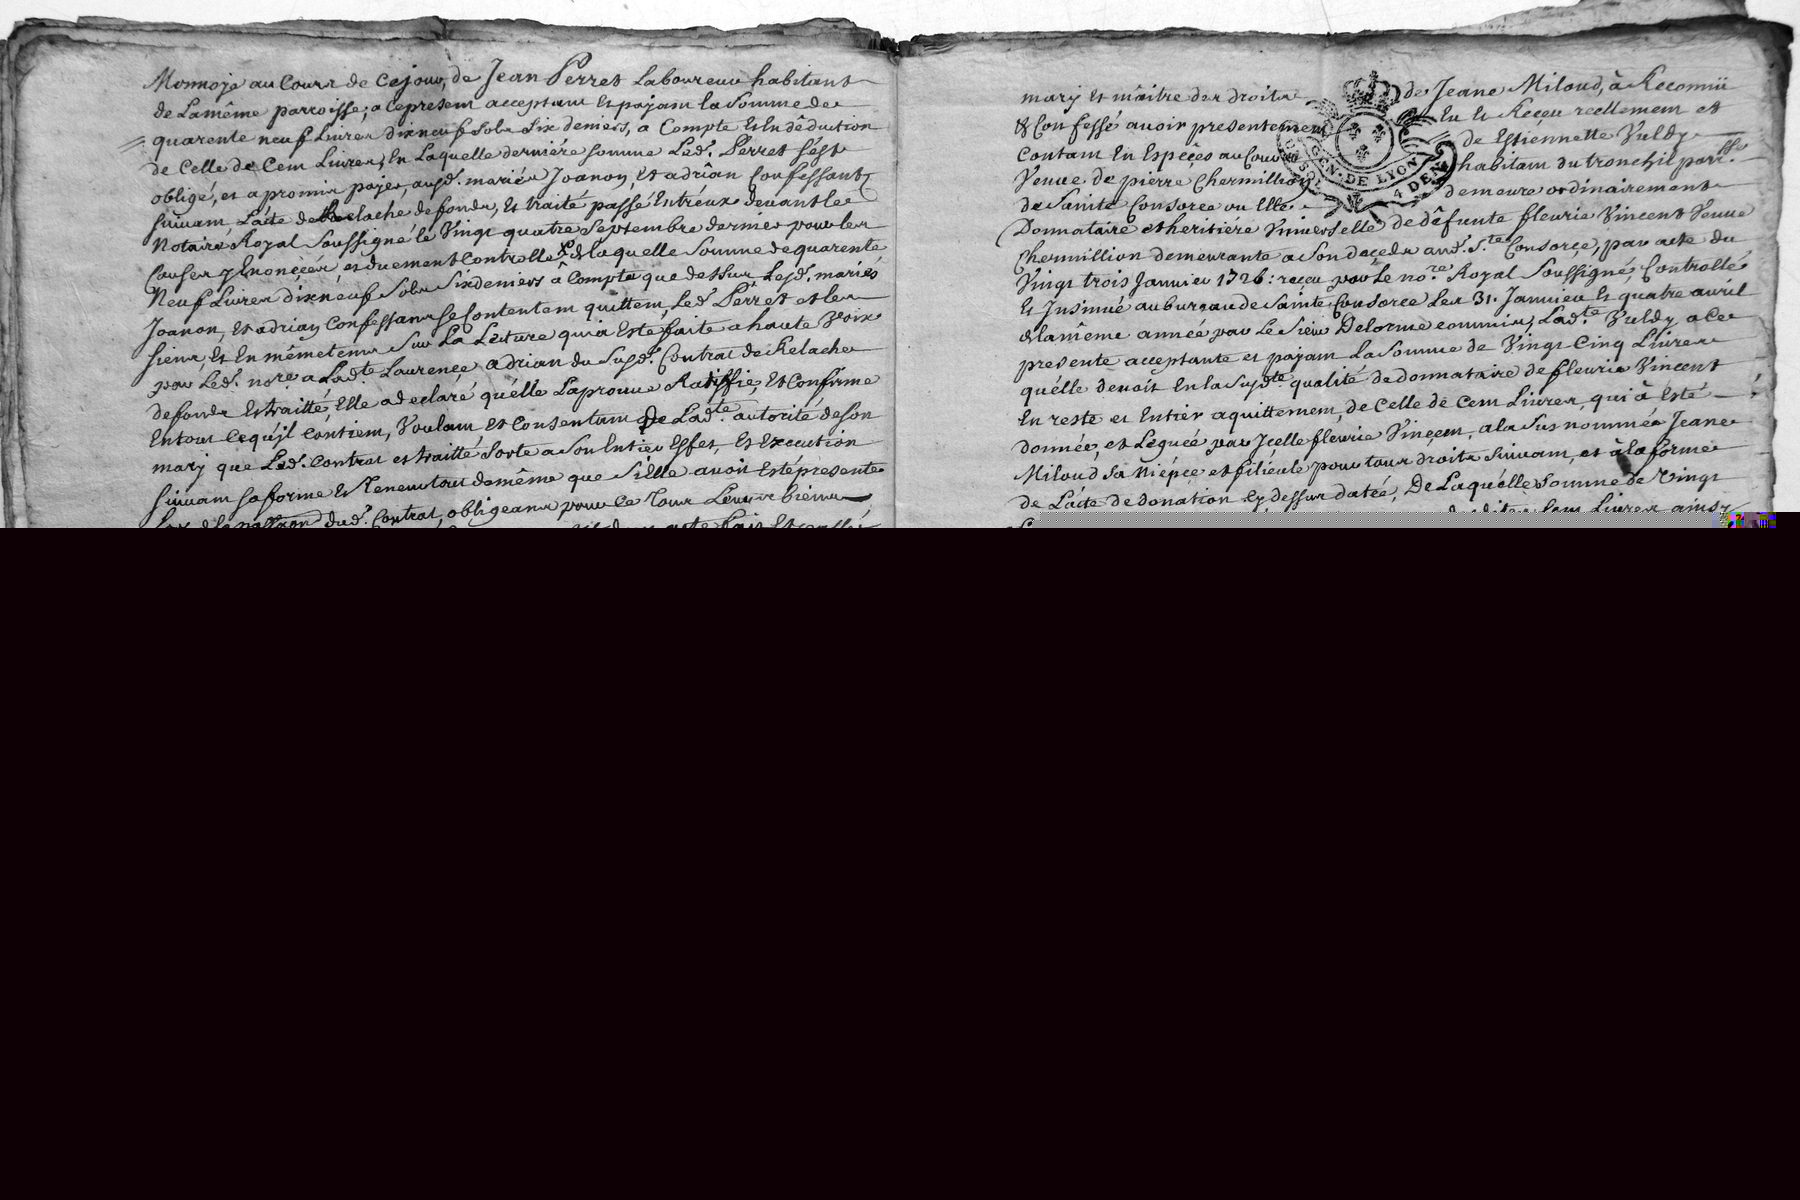 Monnoye au Cours de Cejour, de Jean Perret Laboureur habitant
de Lamême parroisse, a cepresent acceptant Et payant la Somme de
quarente neuf Livres dixneuf sols six deniers, a Compte Et En dêduction
de Celle de Cent Livres, En Laquelle derniére Somme Led.t Perret s'est
obligé, et a promis payer, ausd.t mariés Joanon, Et adrian Confessant
suivant, L'acte de Relache de fonds, Et traité passé Entréux devant le
Notaire Royal Soussigné le Vingt quatre Septembre dernier pour les
Causes y Enoncées, et duement Controllé, de laquelle Somme de quarente
Neuf Livres dixneuf Sols Sixdeniers â Compte que dessus Lesd.t mariés
Joanon, Et adrian Confessans se Contentent quittent, Led.t Perret et les
siens, Et En mêmetems Sur La Lecture qui a Esté faite a haute Voix
par Led.t nore a Lad.te Laurence adrian du Susd.t Contrat de Relache
defonds Et traitté, Elle a declaré qu'élle L'aprouve Ratiffie, Et Confirme
En tout Cequ'il Contient, Voulant Et Consentant De Lad.te autorité deson
mary que Led.t Contrat et traitté Sorte a Son Entier Effet, Et Execution
suivant sa forme Et Teneur tout demême que Si Elle avoit Esté presente
Lors de la passation dud.t Contrat, obligeans pour Ce Tour Leurs biens
mary Et maitre des droits de Jeane Miloud, à Reconnü
& Confessé avoir presentement Eu Et Reçeu reellement et
Contant En Espéçes au Cours de Estiennette Vuldy
Veuve de pierre Chermillion habitant du tronchil parr.sse
de Sainte Consorce ou Elle demeure ordinairement
Donnataire et heritiére Vniverselle de dêfunte fleurie Vincent Veuve
Chermillion demeurante a Son decéds aud.t S.te Consorce, par acte du
Vingt trois Janvier 1726: reçu par Le no.re Royal Soussigné, Controllé
Et Insinué au bureau de Sainte Consorce Les 31. Janvier Et quatre avril
de lamême année par Le Sieur Delorme commis, Lad.te Vuldy a Ce
presente acceptante et payant La Somme de Vingt Cinq Livres
qu'élle devoit En la Susd.te qualité de donnataire de fleurie Vincent
En reste et Entier aquittement, de Celle de Cent Livres, qui à Esté
donnée, et Léguée par Jcelle fleurie Vincent, a la Sus nommée Jeane
Miloud Sa Niépce et filieule pour tous droits Suivant, et à la forme
de L'acte de donation Cy dessus datée, De Laquélle Somme de Vingt
Cent Livres ainsy
GEN. DE LYON
4 DEN.